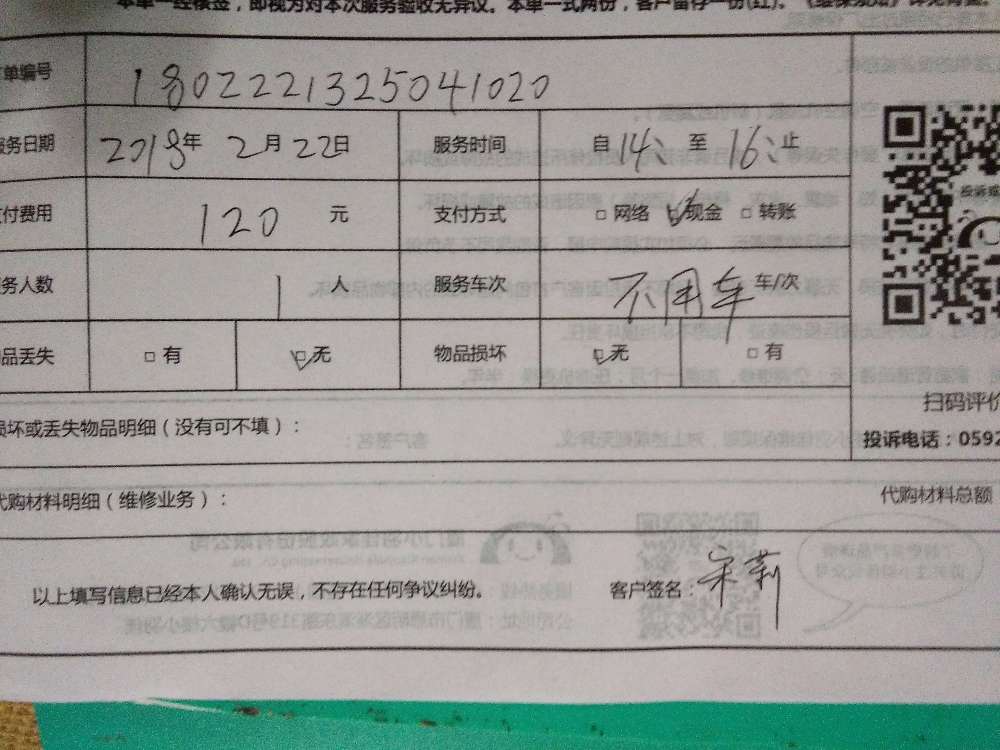 本单一经核签，即视为对本次服务验收无异议。本单一式两份，客户留存一份(红)。
单编号 1802221325041020
服务日期 2018年 2月 22日 服务时间 自14: 至 16:止
支付费用 120 元 支付方式 □网络 □现金 □转账
服务人数 1 人 服务车次 不用车 车/次
物品丢失 □有 □无 物品损坏 □无 □有
扫码评价
损坏或丢失物品明细（没有可不填）：
投诉电话：0592
代购材料明细（维修业务）：
代购材料总额
以上填写信息已经本人确认无误，不存在任何争议纠纷。
客户签名：宋莉